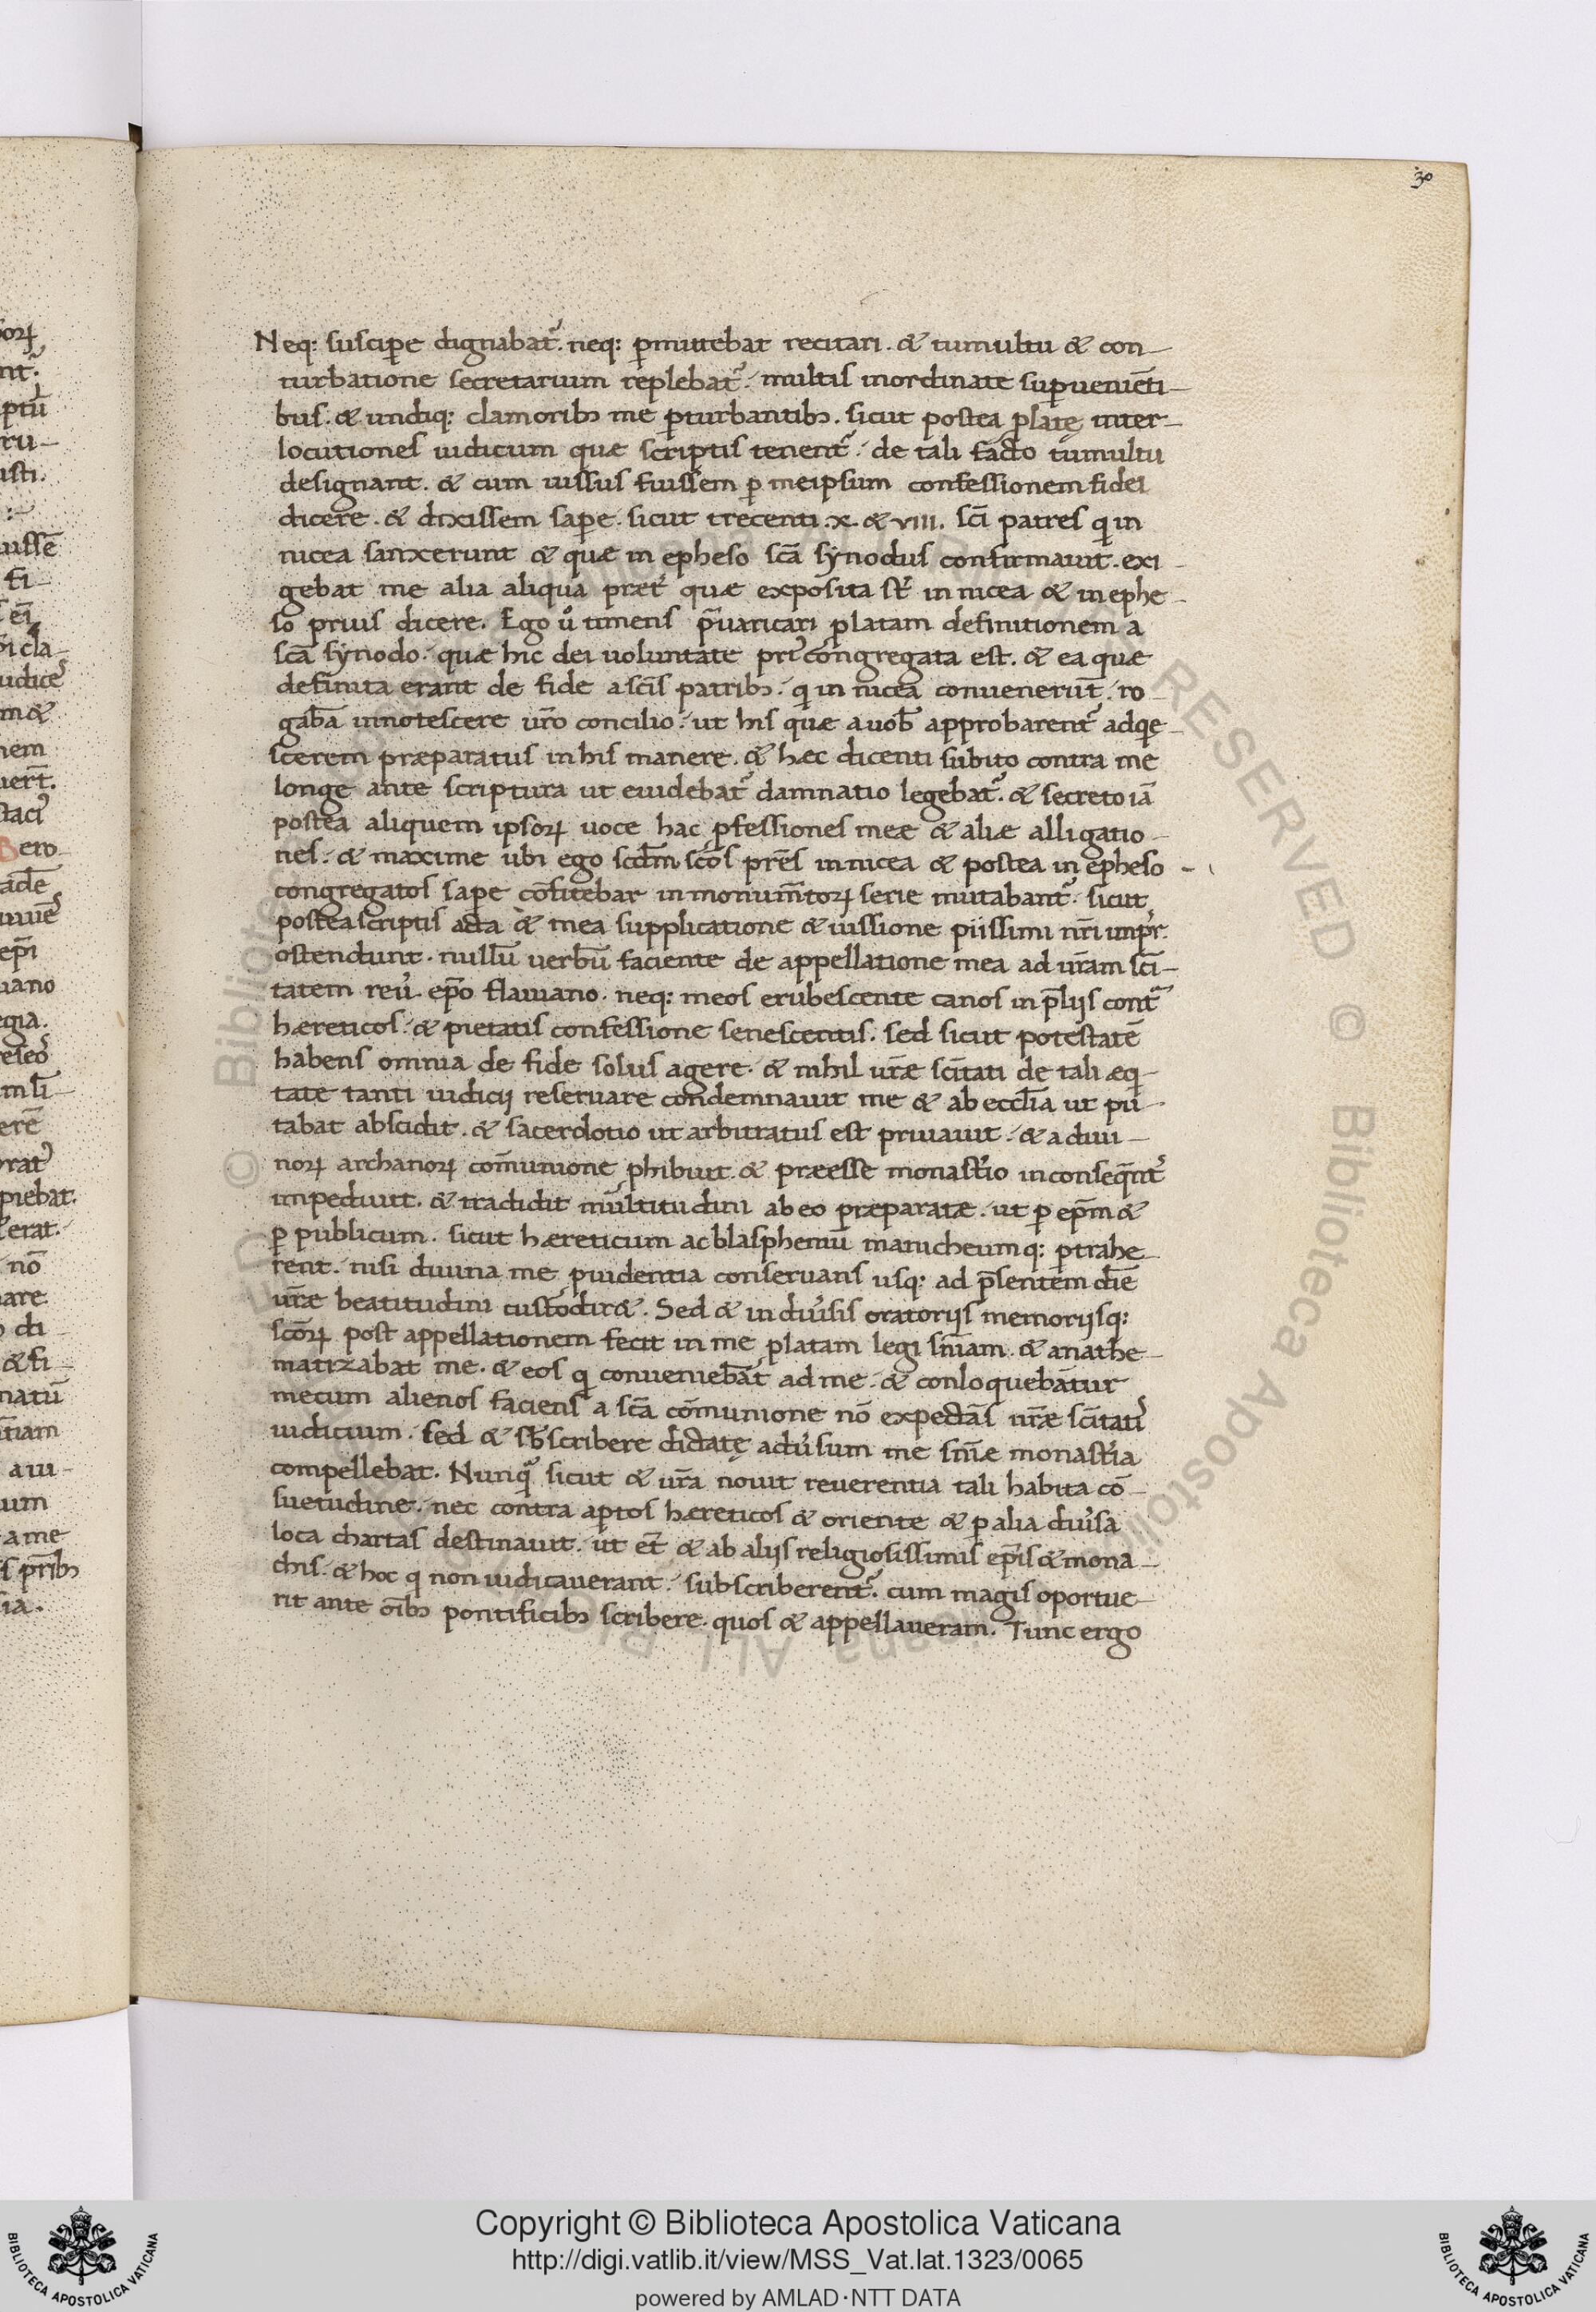 30
Neq: suscipe dignabat᷑. neq: ꝑmittebat recitari. & tumultu & con-
turbatione secretarium replebat᷑. multis inordinate suꝑuenie̅ti-
bus. & undiq: clamorib; me ꝑturbantib;. sicut postea ꝓlatę inter-
locutiones iudicum quæ scriptis tenent᷑. de tali facto tumultu
designant. & cum iussus fuissem ꝑ meipsum confessionem fidei
dicere. & dixissem sæpe. sicut trecenti .x. & VIII. sc̅i patres qi in
nicea sanxerunt & quæ in epheso sc̅a synodus confirmauit. exi-
gebat me alia aliqua præt᷑ quæ exposita st᷑ in nicea & in ephe-
so prius dicere. Ego u̇ timens p̅uaricari ꝓlatam definitionem a
sc̅a synodo. quæ hic dei uoluntate pri᷑ congregata est. & ea quæ
definita erant de fide a sc̅is patrib;. qi in nicea conuenerut̅. ro-
gaba̅ innotescere ur̅o concilio. ut his quæ a uob̅ approbarent᷑ adqie-
scerem præparatus in his manere. & hæc dicenti subito contra me
longe ante scriptura ut euidebat᷑ damnatio legebat᷑. & secreto ia̅
postea aliquem ipsoꝝ uoce hac ꝓfessiones meæ & aliæ alligatio-
nes. & maxime ubi ego scdm̅ sc̅os pre̅s in nicea & postea in epheso -
congregatos sæpe co̅fitebar in monum̅toꝝ serie mutabant᷑. sicut
postea scriptis acta & mea supplicatione & iussione piissimi nr̅i impr̅.
ostendunt. nullu̅ uerbu̅ faciente de appellatione mea ad ur̅am sc̅i-
tatem reu̇. ep̅o flauiano. neq: meos erubescente canos in p̅lijs cont᷑
hæreticos. & pietatis confessione senescentis. sed sicut potestate̅
habens omnia de fide solus agere. & nihil ur̅æ sc̅itati de tali æqi-
tate tanti iudicij reseruare condemnauit me & ab eccl̅ia ut pu-
tabat abscidit. & sacerdotio ut arbitratus est priuauit. & a diui-
noꝝ archanoꝝ com̅unione ꝓhibuit. & præesse monast᷑io inconseqn̅t᷑
impediuit. & tradidit multitudini ab eo præparatæ. ut ꝑ ep̅m &
ꝑ publicum. sicut hæreticum ac blasphemu̅ manicheumq: ꝑtrahe-
rent. nisi diuina me ꝓuidentia conseruans usq: ad p̅sentem die̅
ur̅æ beatitudini custodir&. Sed & in diu᷑sis oratorijs memorijsq:
sc̅oꝝ post appellationem fecit in me ꝓlatam legi sn̅iam. & anathe-
matizabat me. & eos qi conuenieba̅t ad me. & conloquebantur
mecum alienos faciens a sc̅a co̅munione no̅ expecta̅s ur̅æ sc̅itati᷑
iudicium. sed & sb̅scribere dictatę adu᷑sum me sn̅iæ monast᷑ia
compellebat. Nunqua̅ sicut & ur̅a nouit reuerentia tali habita co̅-
suetudine. nec contra aꝑtos hæreticos & oriente & ꝑ alia diu᷑sa
loca chartas destinauit. ut et̅ & ab alijs religiosissimis ep̅is & mona-
chis. & hoc qi non iudicauerant. subscriberent᷑. cum magis oportue-
rit ante oi̅b; pontificib; scribere. quos & appellaueram. Tunc ergo
Copyright © Biblioteca Apostolica Vaticana
http://digi.vatlib.it/view/MSS_Vat.lat.1323/0065
powered by AMLAD·NTT DATA